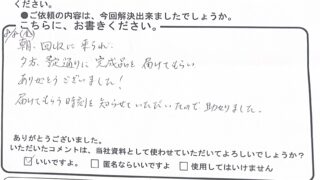 ください。
●ご依頼の内容は、今回解決出来ましたでしょうか。
こちらに、お書きください。
朝、回収に来られ
夕方、予定通りに完成品を届けてもらい
ありがとうございました!
届けてもらう時刻を知らせていただいたので助かりました。
ありがとうございました。
いただいたコメントは、当社資料として使わせていただいてよろしいでしょうか?
☑いいですよ。 □匿名ならいいですよ □使用してはいけません